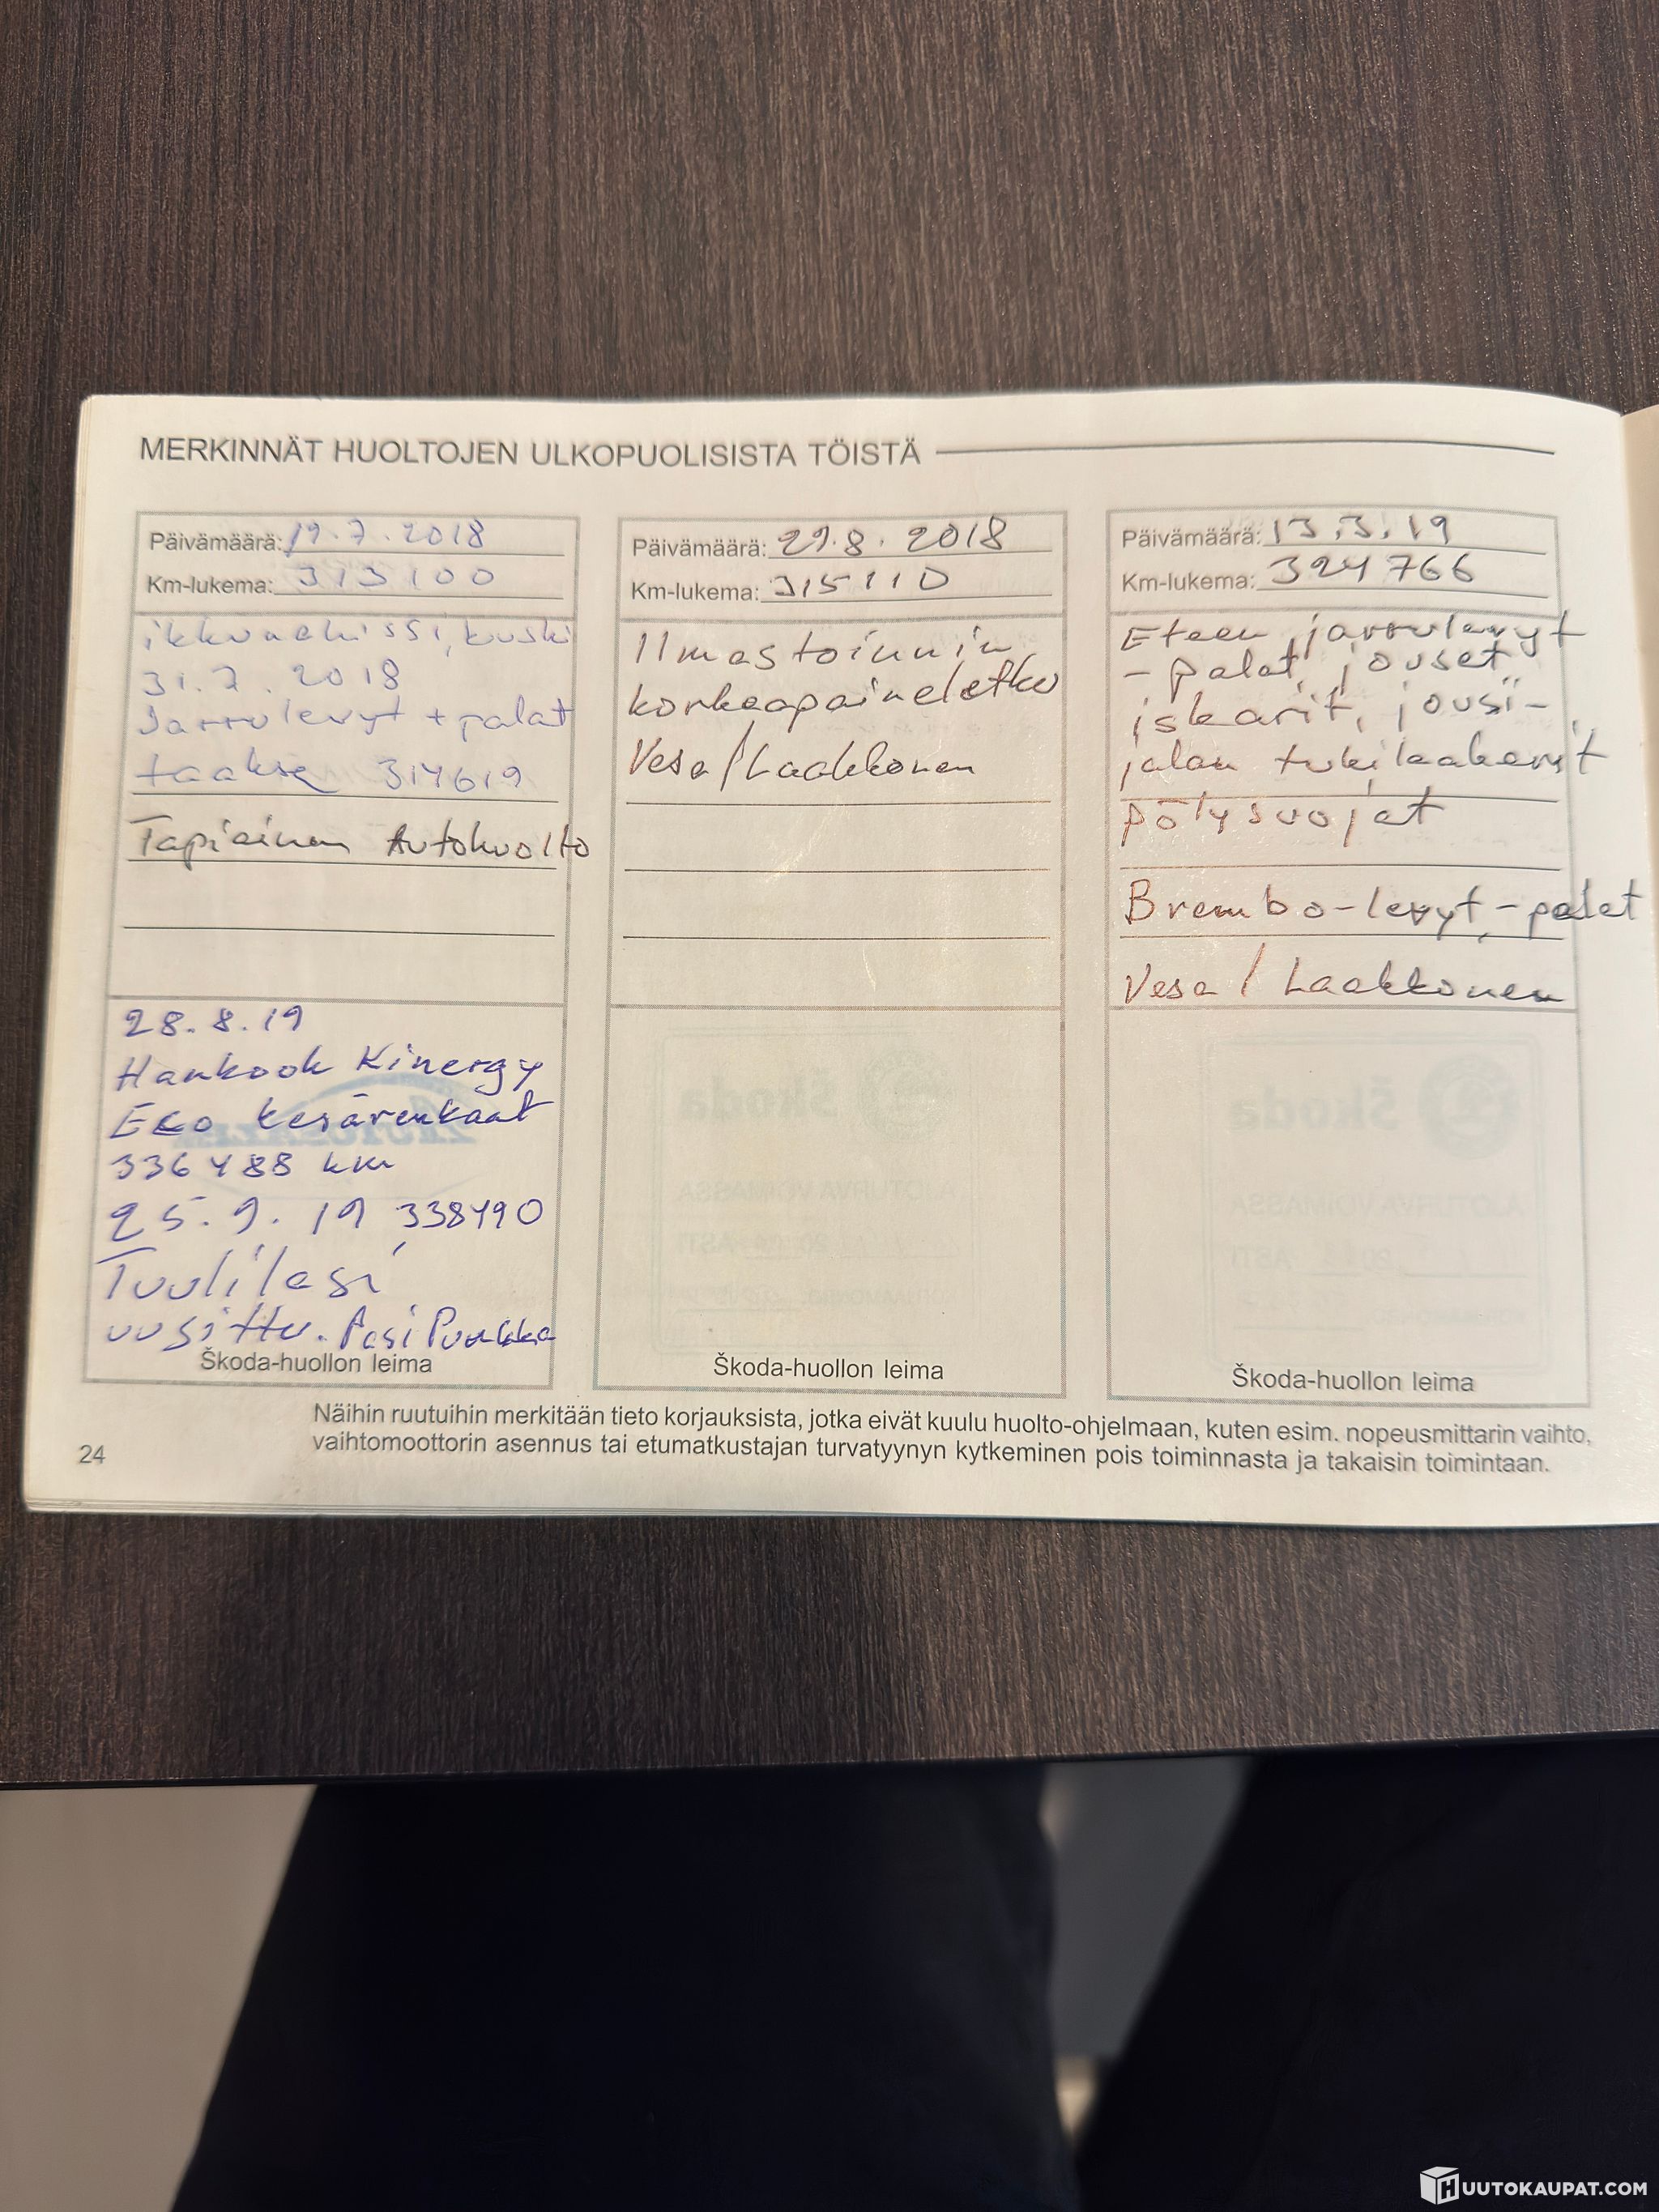 MERKINNÄT HUOLTOJEN ULKOPUOLISISTA TÖISTÄ
Päivämäärä: 19.7.2018
Km-lukema: 313100
ikkunahissi, kuski
31.7.2018
Jarrulevyt + palat
taakse 314619
Tapiainen Autohuolto
28.8.19
Hankook Kinergy
Eco kesärenkaat
336488 km
25.9.19 338490
Tuulilasi
uusittu. Pasi Puukka
Škoda-huollon leima
Päivämäärä: 29.8.2018
Km-lukema: 315110
Ilmastoinnin
korkeapaineletku
Vesa/Laakkonen
Škoda-huollon leima
Päivämäärä: 13.3.19
Km-lukema: 324766
Eteen jarrulevyt
-palat, jouset
iskarit, jousi-
jalan tukilaakerit
pölysuojat
Brembo-levyt, -palat
Vesa / Laakkonen
Škoda-huollon leima
Näihin ruutuihin merkitään tieto korjauksista, jotka eivät kuulu huolto-ohjelmaan, kuten esim. nopeusmittarin vaihto,
vaihtomoottorin asennus tai etumatkustajan turvatyynyn kytkeminen pois toiminnasta ja takaisin toimintaan.
24
HUUTOKAUPAT.COM